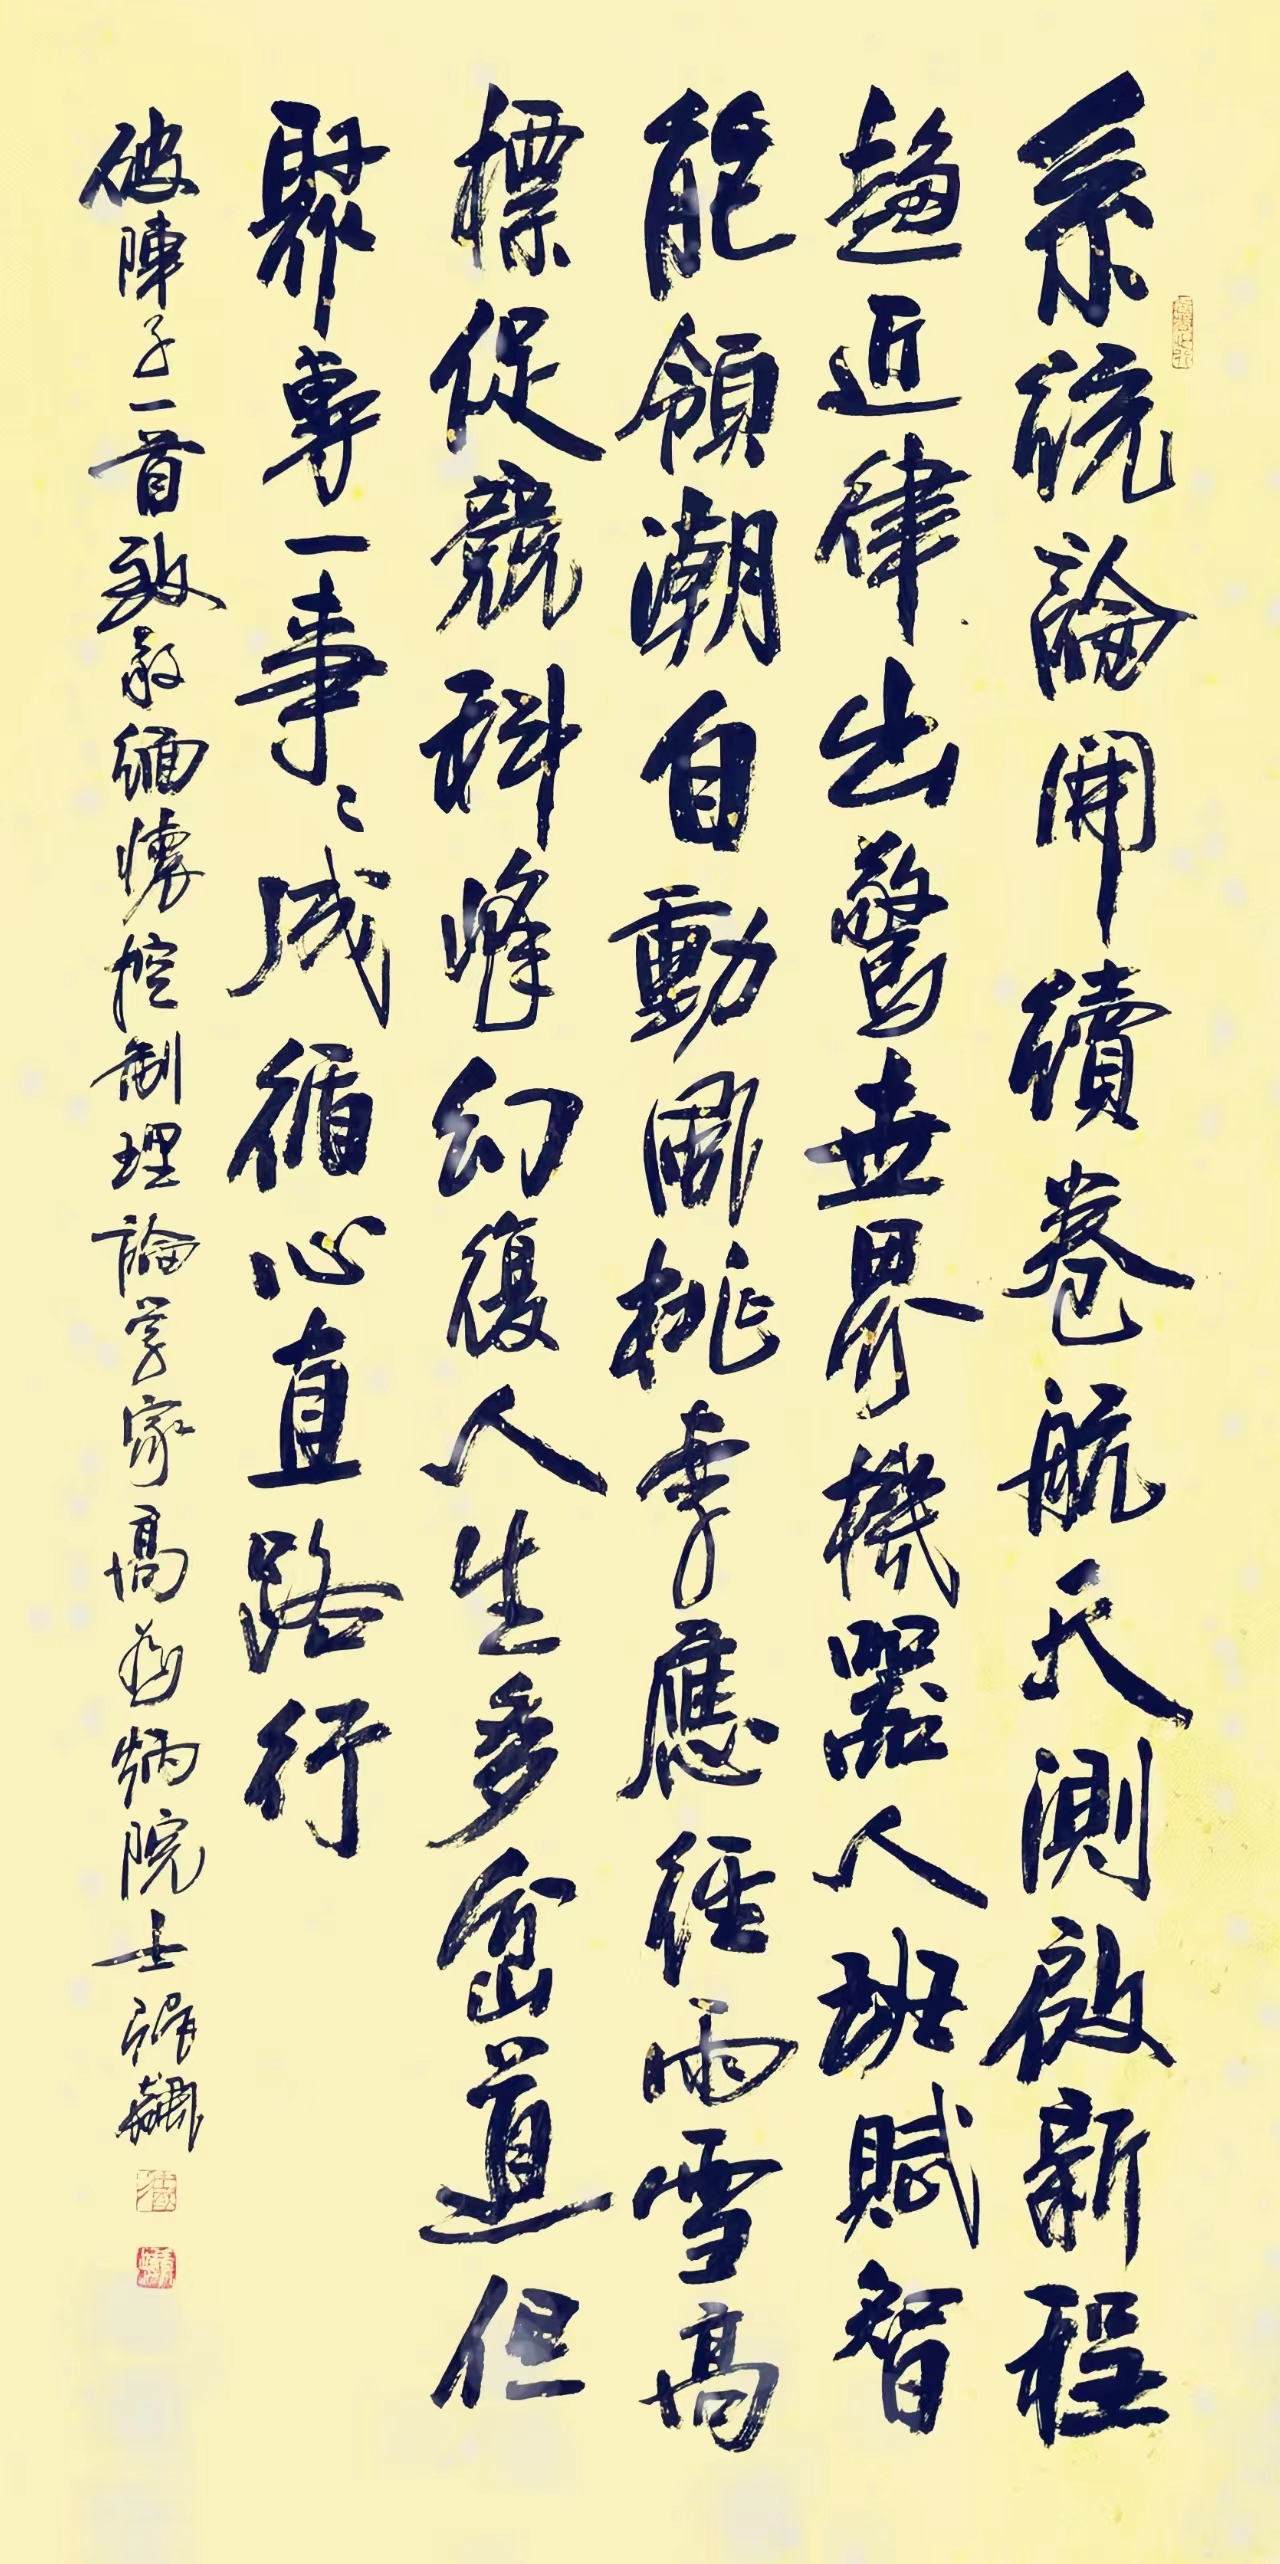 系統論開續卷航天測啟新程
趨近律出驚世界機器人班賦智
能領潮自動風桃李應經雨雪高
標促競科峰幻復人生多岔道但
聚專一事〻成循心直路行
破陣子一首致敬緬懷控制理論学家高為炳院士